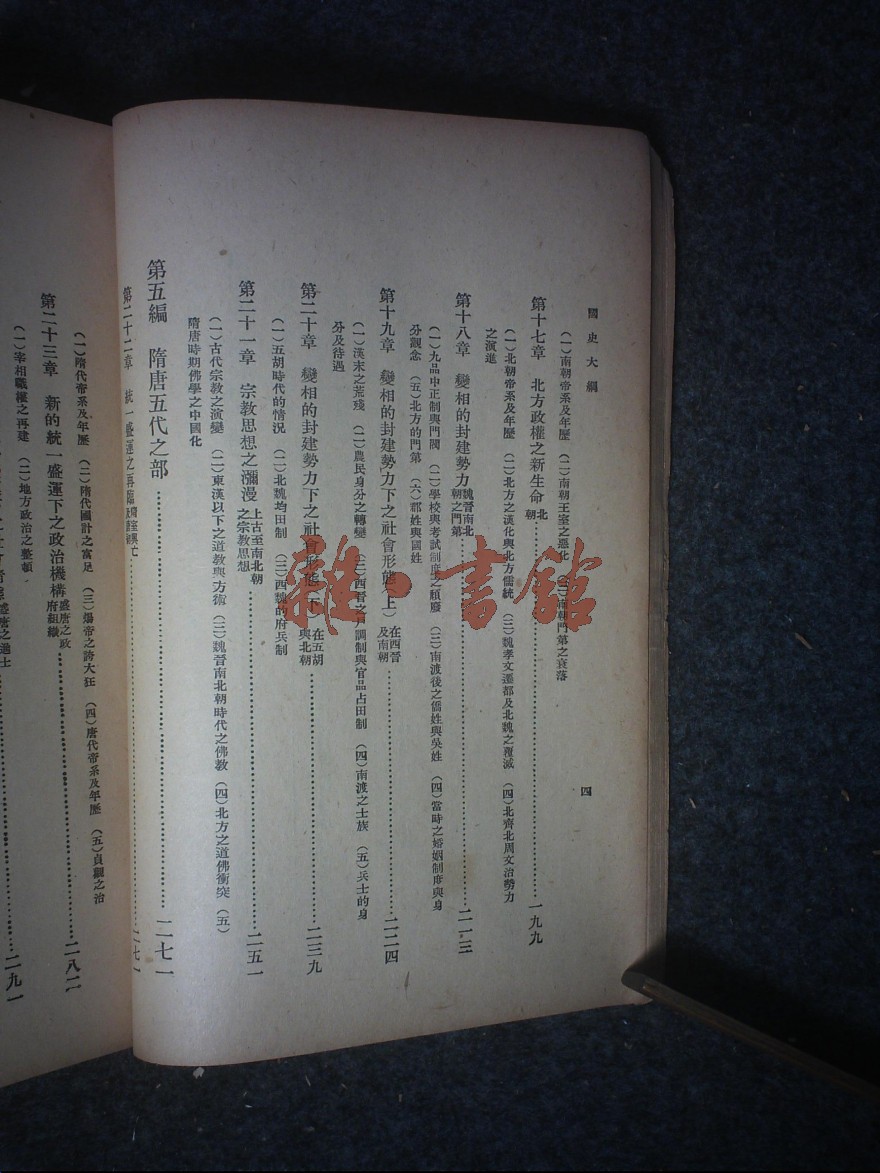 國史大綱
四
(一)南朝帝系及年歷 (二)南朝王室之惡化 (三)南朝門第之衰落
第十七章 北方政權之新生命 北朝 一九九
(一)北朝帝系及年歷 (二)北方之漢化與北方儒統 (三)魏孝文遷都及北魏之覆滅 (四)北齊北周文治勢力
之演進
第十八章 變相的封建勢力 魏晉南北朝之門第 二一三
(一)九品中正制與門閥 (二)學校與考試制度之頹廢 (三)南渡後之僑姓與吳姓 (四)當時之婚姻制度與身
分觀念 (五)北方的門第 (六)郡姓與國姓
第十九章 變相的封建勢力下之社會形態(上) 在西晉及南朝 二二四
(一)漢末之荒殘 (二)農民身分之轉變 (三)西晉之戶調制與官品占田制 (四)南渡之士族 (五)兵士的身
分及待遇
第二十章 變相的封建勢力下之社會形態(下) 在五胡與北朝 二三九
(一)五胡時代的情況 (二)北魏均田制 (三)西魏的府兵制
第二十一章 宗教思想之瀰漫 上古至南北朝之宗教思想 二五一
(一)古代宗教之演變 (二)東漢以下之道教與方術 (三)魏晉南北朝時代之佛教 (四)北方之道佛衝突 (五)
隋唐時期佛學之中國化
第五編 隋唐五代之部 二七一
第二十二章 統一盛運之再臨 二七一
(一)隋代帝系及年歷 (二)隋代國計之富足 (三)煬帝之誇大狂 (四)唐代帝系及年歷 (五)貞觀之治
第二十三章 新的統一盛運下之政治機構 盛唐之政府組織 二八二
(一)宰相職權之再建 (二)地方政治之整頓
二九一
雜·書館